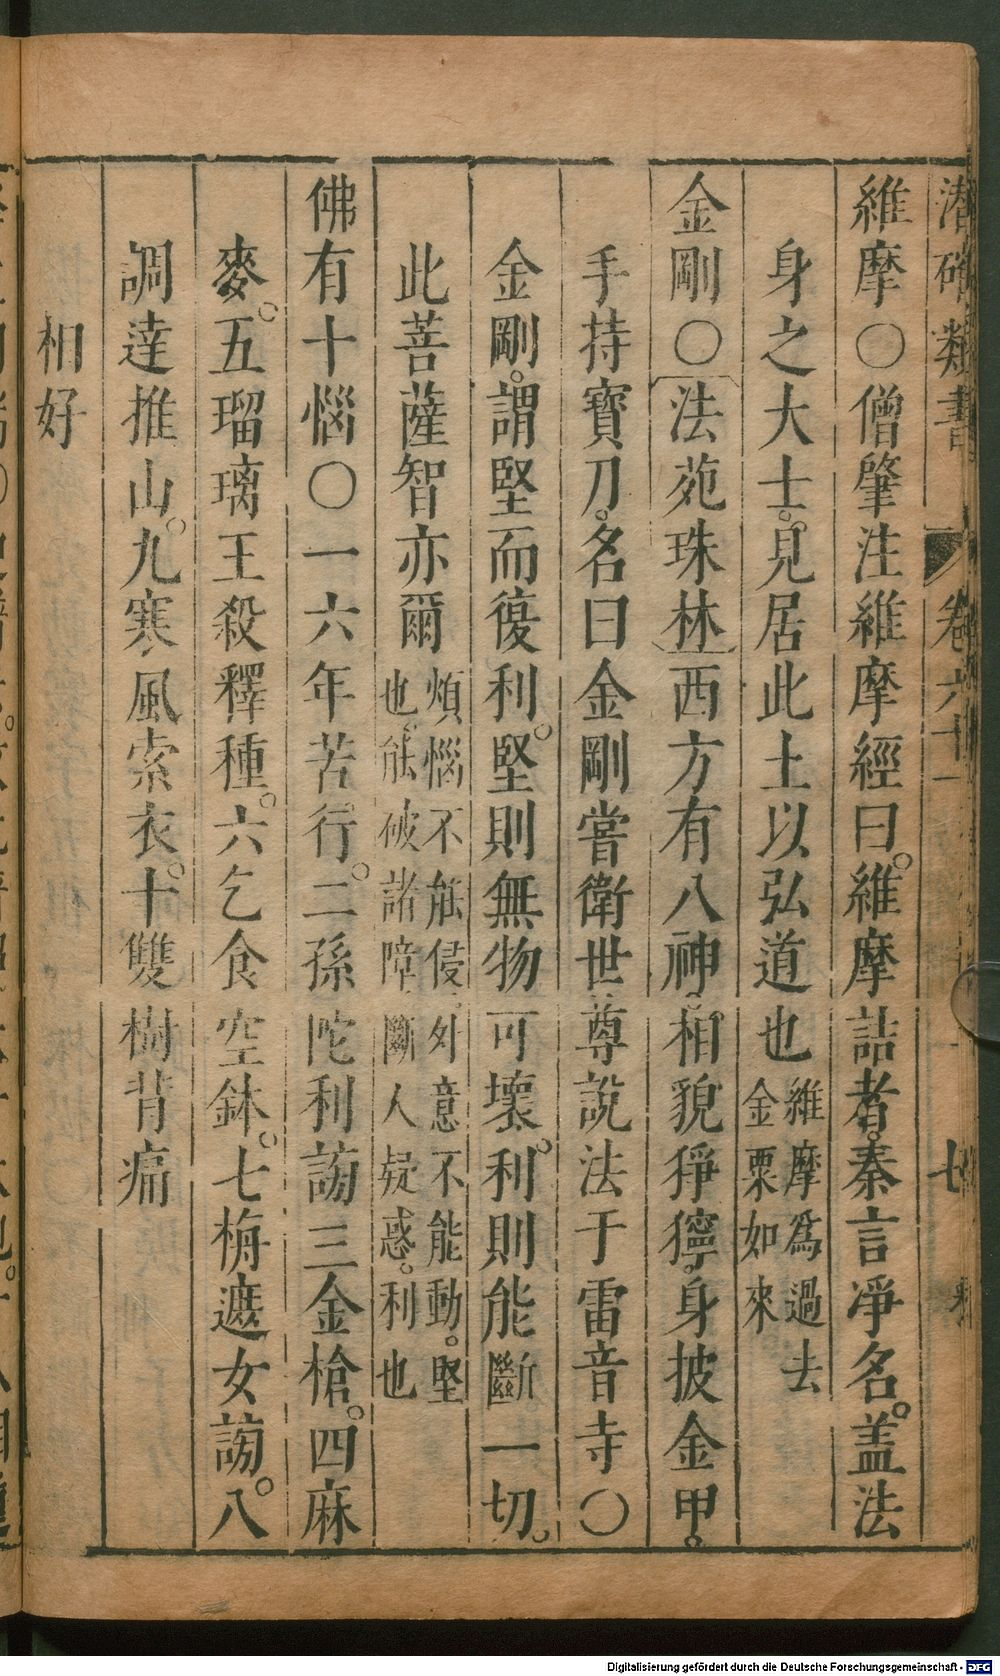 潛確類書
卷六十一
七
維摩〇僧肇注維摩經曰。維摩詰者。秦言淨名。盖法
身之大士。見居此土以弘道也維摩為過去
金粟如來
金剛〇法苑珠林西方有八神。相貌猙獰。身披金甲。
手持寶刀。名曰金剛嘗衛世尊說法于雷音寺〇
金剛。謂堅而復利。堅則無物可壞。利則能斷一切。
此菩薩智亦爾煩惱不能侵。外意不能動。堅
也。能破諸障。斷人疑惑。利也
佛有十惱〇一六年苦行。二孫陀利謗三金槍。四麻
麥。五瑠璃王殺釋種。六乞食空鉢。七栴遮女謗。八
調達推山。九寒風索衣。十雙樹背痛
相好
Digitalisierung gefördert durch die Deutsche Forschungsgemeinschaft - DFG